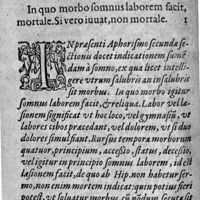 In quo morbo somnus laborem facit,
mortale. Si vero iuuat, non mortale. 1
IN præsenti Aphorismo secundæ se-
ctionis docet indicationem sumē-
dam à somno, ex qua licet intelli-
gere vtrum salubris an insalubris
sit morbus. In quo morbo igitur
somnus laborem facit, & reliqua. Labor vel læ-
sionem significat vt hoc loco, vel gymnasiū, vt
labores cibos præcedant, vel dolorem, vt si duo
dolores simul sint. Rursus tempora morborum
quatuor, principium, accessio, status, decessio,
vel igitur in principio somnus laborem, id est
læsionem facit, de quo ab Hip. non habetur ser-
mo, non enim mortem indicat: quin potius fieri
potest, vt soluatur morbus, cū nōdum secuta sit